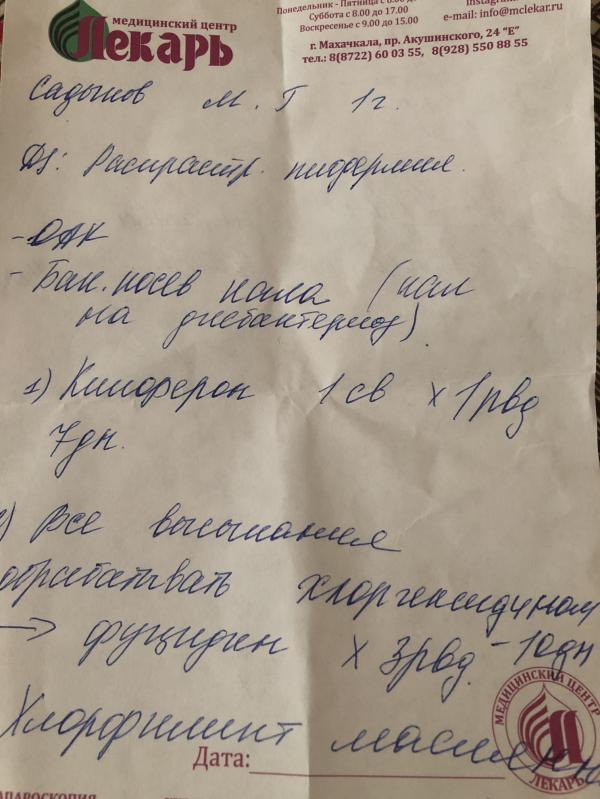 медицинский центр
Лекарь
Понедельник - Пятница с 8.00 до
Суббота с 8.00 до 17.00
Воскресенье с 9.00 до 15.00
instagram
e-mail: info@mclekar.ru
г. Махачкала, пр. Акушинского, 24 "Е"
тел.: 8(8722) 60 03 55, 8(928) 550 88 55
Садыков М. Г 1г.
DS: Распрастр. пиодермия.
- ОАК
- Бак. посев кала (кал
на дисбактериоз)
1) Кипферон 1 св х 1 рвд
7 дн.
) Все высыпания
обрабатывать хлоргексидином
→ фуцидин х 3 рвд - 10 дн
Хлорфиллипт масляный
Дата:
МЕДИЦИНСКИЙ ЦЕНТР
ЛЕКАРЬ
АПАРОСКОПИЯ